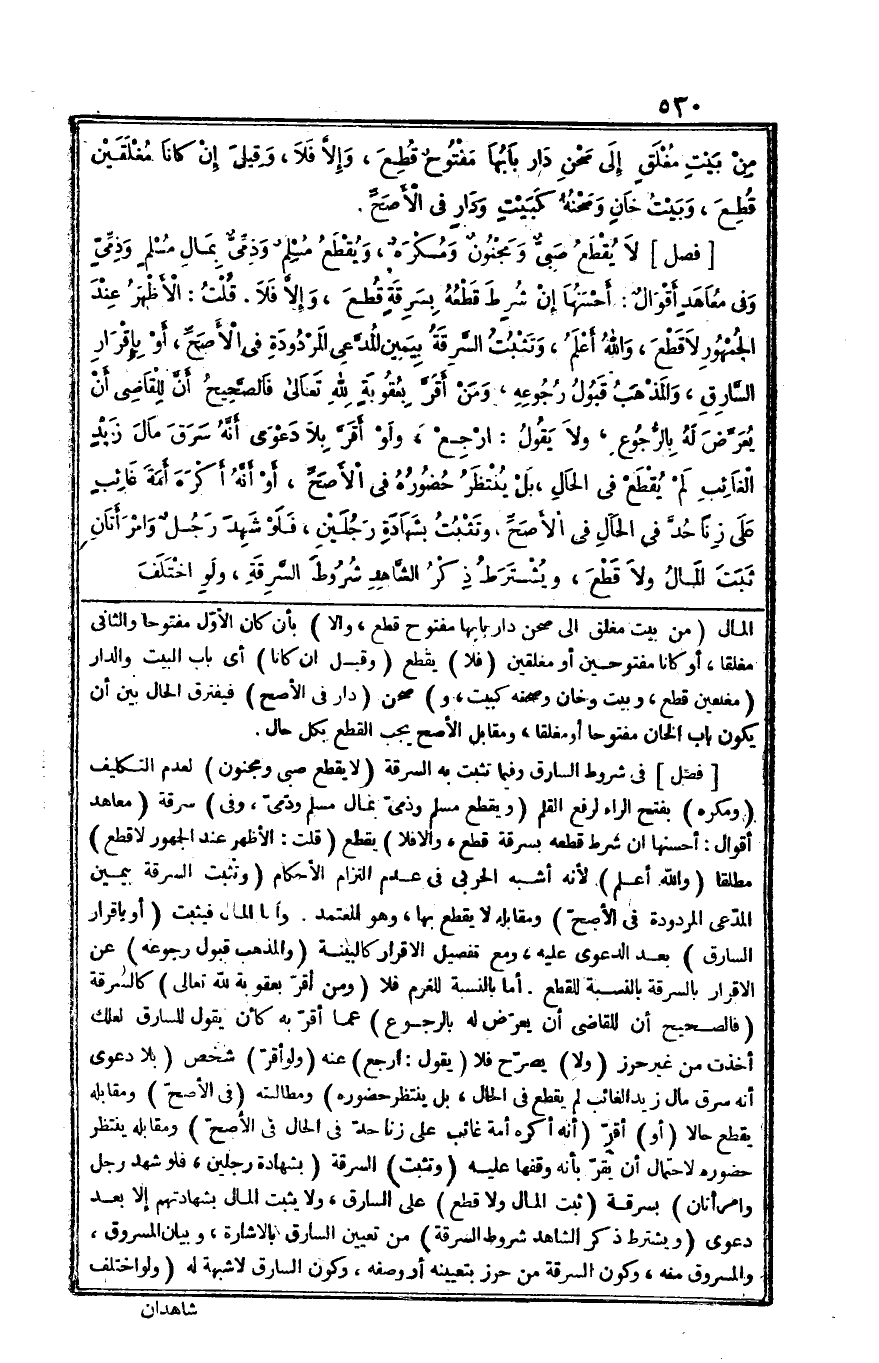 ٥٣٠
مِنْ بَيْتٍ مُغْلَقٍ إِلَى صَحْنِ دَارٍ بَابُهَا مَفْتُوحٌ قُطِعَ ، وَإِلاَّ فَلاَ ، وَقِيلَ إِنْ كَانَا مُغْلَقَيْنِ
قُطِعَ ، وَبَيْتُ خَانٍ وَصَحْنُهُ كَبَيْتٍ وَدَارٍ فِي الْأَصَحِّ .
[ فصل ] لاَ يُقْطَعُ صَبِيٌّ وَمَجْنُونٌ وَمُكْرَهٌ ، وَيُقْطَعُ مُسْلِمٌ وَذِمِّيٌّ بِمَالِ مُسْلِمٍ وَذِمِّيٍّ
وَفِي مُعَاهَدٍ أَقْوَالٌ : أَحْسَنُهَا إِنْ شُرِطَ قَطْعُهُ بِسَرِقَةٍ قُطِعَ ، وَإِلاَّ فَلاَ . قُلْتُ : الْأَظْهَرُ عِنْدَ
الْجُمْهُورِ لاَ قَطْعَ ، وَاللهُ أَعْلَمُ ، وَتَثْبُتُ السَّرِقَةُ بِيَمِينِ الْمُدَّعِي الْمَرْدُودَةِ فِي الْأَصَحِّ ، أَوْ بِإِقْرَارِ
السَّارِقِ ، وَالْمَذْهَبُ قَبُولُ رُجُوعِهِ ، وَمَنْ أَقَرَّ بِعُقُوبَةٍ لِلهِ تَعَالَى فَالصَّحِيحُ أَنَّ لِلْقَاضِي أَنْ
يُعَرِّضَ لَهُ بِالرُّجُوعِ ، وَلاَ يَقُولُ : ارْجِعْ ، وَلَوْ أَقَرَّ بِلاَ دَعْوَى أَنَّهُ سَرَقَ مَالَ زَيْدٍ
الْغَائِبِ لَمْ يُقْطَعْ فِي الْحَالِ ، بَلْ يُنْتَظَرُ حُضُورُهُ فِي الْأَصَحِّ ، أَوْ أَنَّهُ أَكْرَهَ أَمَةَ غَائِبٍ
عَلَى زِنًا حُدَّ فِي الْحَالِ فِي الْأَصَحِّ . وَتَثْبُتُ بِشَهَادَةِ رَجُلَيْنِ ، فَلَوْ شَهِدَ رَجُلٌ وَامْرَأَتَانِ
ثَبَتَ الْمَالُ وَلاَ قَطْعَ ، وَيُشْتَرَطُ ذِكْرُ الشَّاهِدِ شُرُوطَ السَّرِقَةِ ، وَلَوِ اخْتَلَفَ
المال ( من بيت مغلق الى صحن دار بابها مفتوح قطع ، والا ) بأن كان الأوّل مفتوحا والثانى
مغلقا ، أو كانا مفتوحين أو مغلقين ( فلا ) يقطع ( وقيل ان كانا ) أى باب البيت والدار
( مغلقين قطع ، وبيت وخان وصحنه كبيت ، و ) صحن ( دار فى الأصح ) فيفترق الحال بين أن
يكون باب الخان مفتوحا أو مغلقا ، ومقابل الأصح يجب القطع بكل حال .
[ فصل ] فى شروط السارق وفيما تثبت به السرقة ( لا يقطع صبى ومجنون ) لعدم التكليف
( ومكره ) بفتح الراء لرفع القلم ( ويقطع مسلم وذمىّ بمال مسلم وذمّىّ ، وفى ) سرقة ( معاهد
أقوال : أحسنها ان شرط قطعه بسرقة قطع ، والافلا ) يقطع ( قلت : الأظهر عند الجمهور لاقطع )
مطلقا ( والله أعلم ) لأنه أشبه الحربى فى عدم التزام الأحكام ( وتثبت السرقة بيمين
المدّعى المردودة فى الأصحّ ) ومقابله لا يقطع بها ، وهو المعتمد . وأما المال فيثبت ( أو باقرار
السارق ) بعد الدعوى عليه ، ومع تفصيل الاقرار كالبينة ( والمذهب قبول رجوعه ) عن
الاقرار بالسرقة بالنسبة للقطع . أما بالنسبة للغرم فلا ( ومن أقرّ بعقوبة لله تعالى ) كالسرقة
( فالصحيح أن للقاضى أن يعرّض له بالرجوع ) عما أقرّ به كأن يقول للسارق لعلك
أخذت من غير حرز ( ولا ) يصرّح فلا ( يقول : ارجع ) عنه ( ولو أقرّ ) شخص ( بلا دعوى
أنه سرق مال زيد الغائب لم يقطع فى الحال ، بل ينتظر حضوره ) ومطالبته ( فى الأصحّ ) ومقابله
يقطع حالا ( أو ) أقرّ ( أنه أكره أمة غائب على زنا حدّ فى الحال فى الأصحّ ) ومقابله ينتظر
حضوره لاحتمال أن يقرّ بأنه وقفها عليه ( وتثبت ) السرقة ( بشهادة رجلين ، فلو شهد رجل
وامرأتان ) بسرقة ( ثبت المال ولا قطع ) على السارق ، ولا يثبت المال بشهادتهم إلا بعد
دعوى ( ويشترط ذكر الشاهد شروط السرقة ) من تعيين السارق بالاشارة ، وبيان المسروق ،
والمسروق منه ، وكون السرقة من حرز بتعيينه أو وصفه ، وكون السارق لاشبهة له ( ولو اختلف
شاهدان